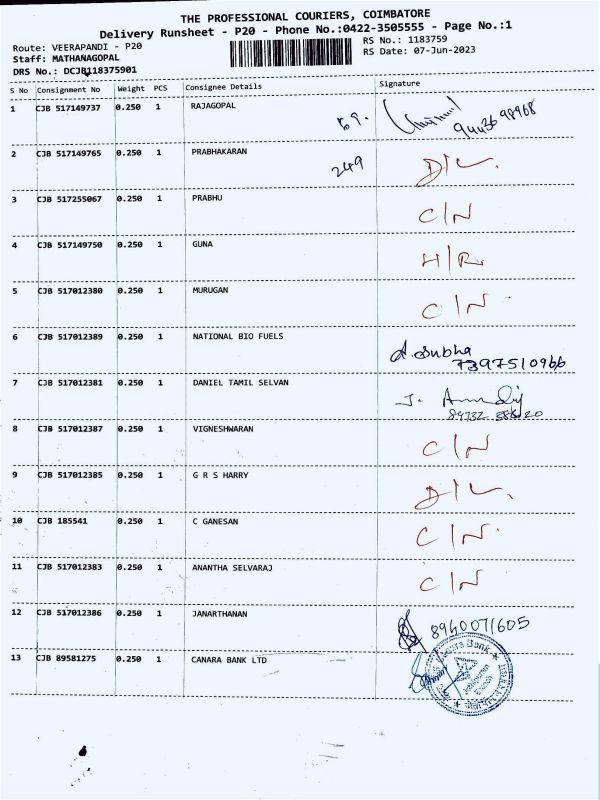 THE PROFESSIONAL COURIERS, COIMBATORE
Delivery Runsheet - P20 - Phone No.:0422-3505555 - Page No.:1
Route: VEERAPANDI - P20
RS No.: 1183759
Staff: MATHANAGOPAL
RS Date: 07-Jun-2023
DRS No.: DCJB118375901
S No Consignment No Weight PCS Consignee Details Signature
1 CJB 517149737 0.250 1 RAJAGOPAL
9443698968
2 CJB 517149765 0.250 1 PRABHAKARAN 249 D/L
3 CJB 517255067 0.250 1 PRABHU C/N
4 CJB 517149750 0.250 1 GUNA H/R
5 CJB 517012380 0.250 1 MURUGAN C/N
6 CJB 517012389 0.250 1 NATIONAL BIO FUELS A. Subha
7397510966
7 CJB 517012381 0.250 1 DANIEL TAMIL SELVAN J.
8 CJB 517012387 0.250 1 VIGNESHWARAN C/N
9 CJB 517012385 0.250 1 G R S HARRY D/L
10 CJB 185541 0.250 1 C GANESAN C/N
11 CJB 517012383 0.250 1 ANANTHA SELVARAJ C/N
12 CJB 517012386 0.250 1 JANARTHANAN 8940071605
13 CJB 89581275 0.250 1 CANARA BANK LTD
Bank